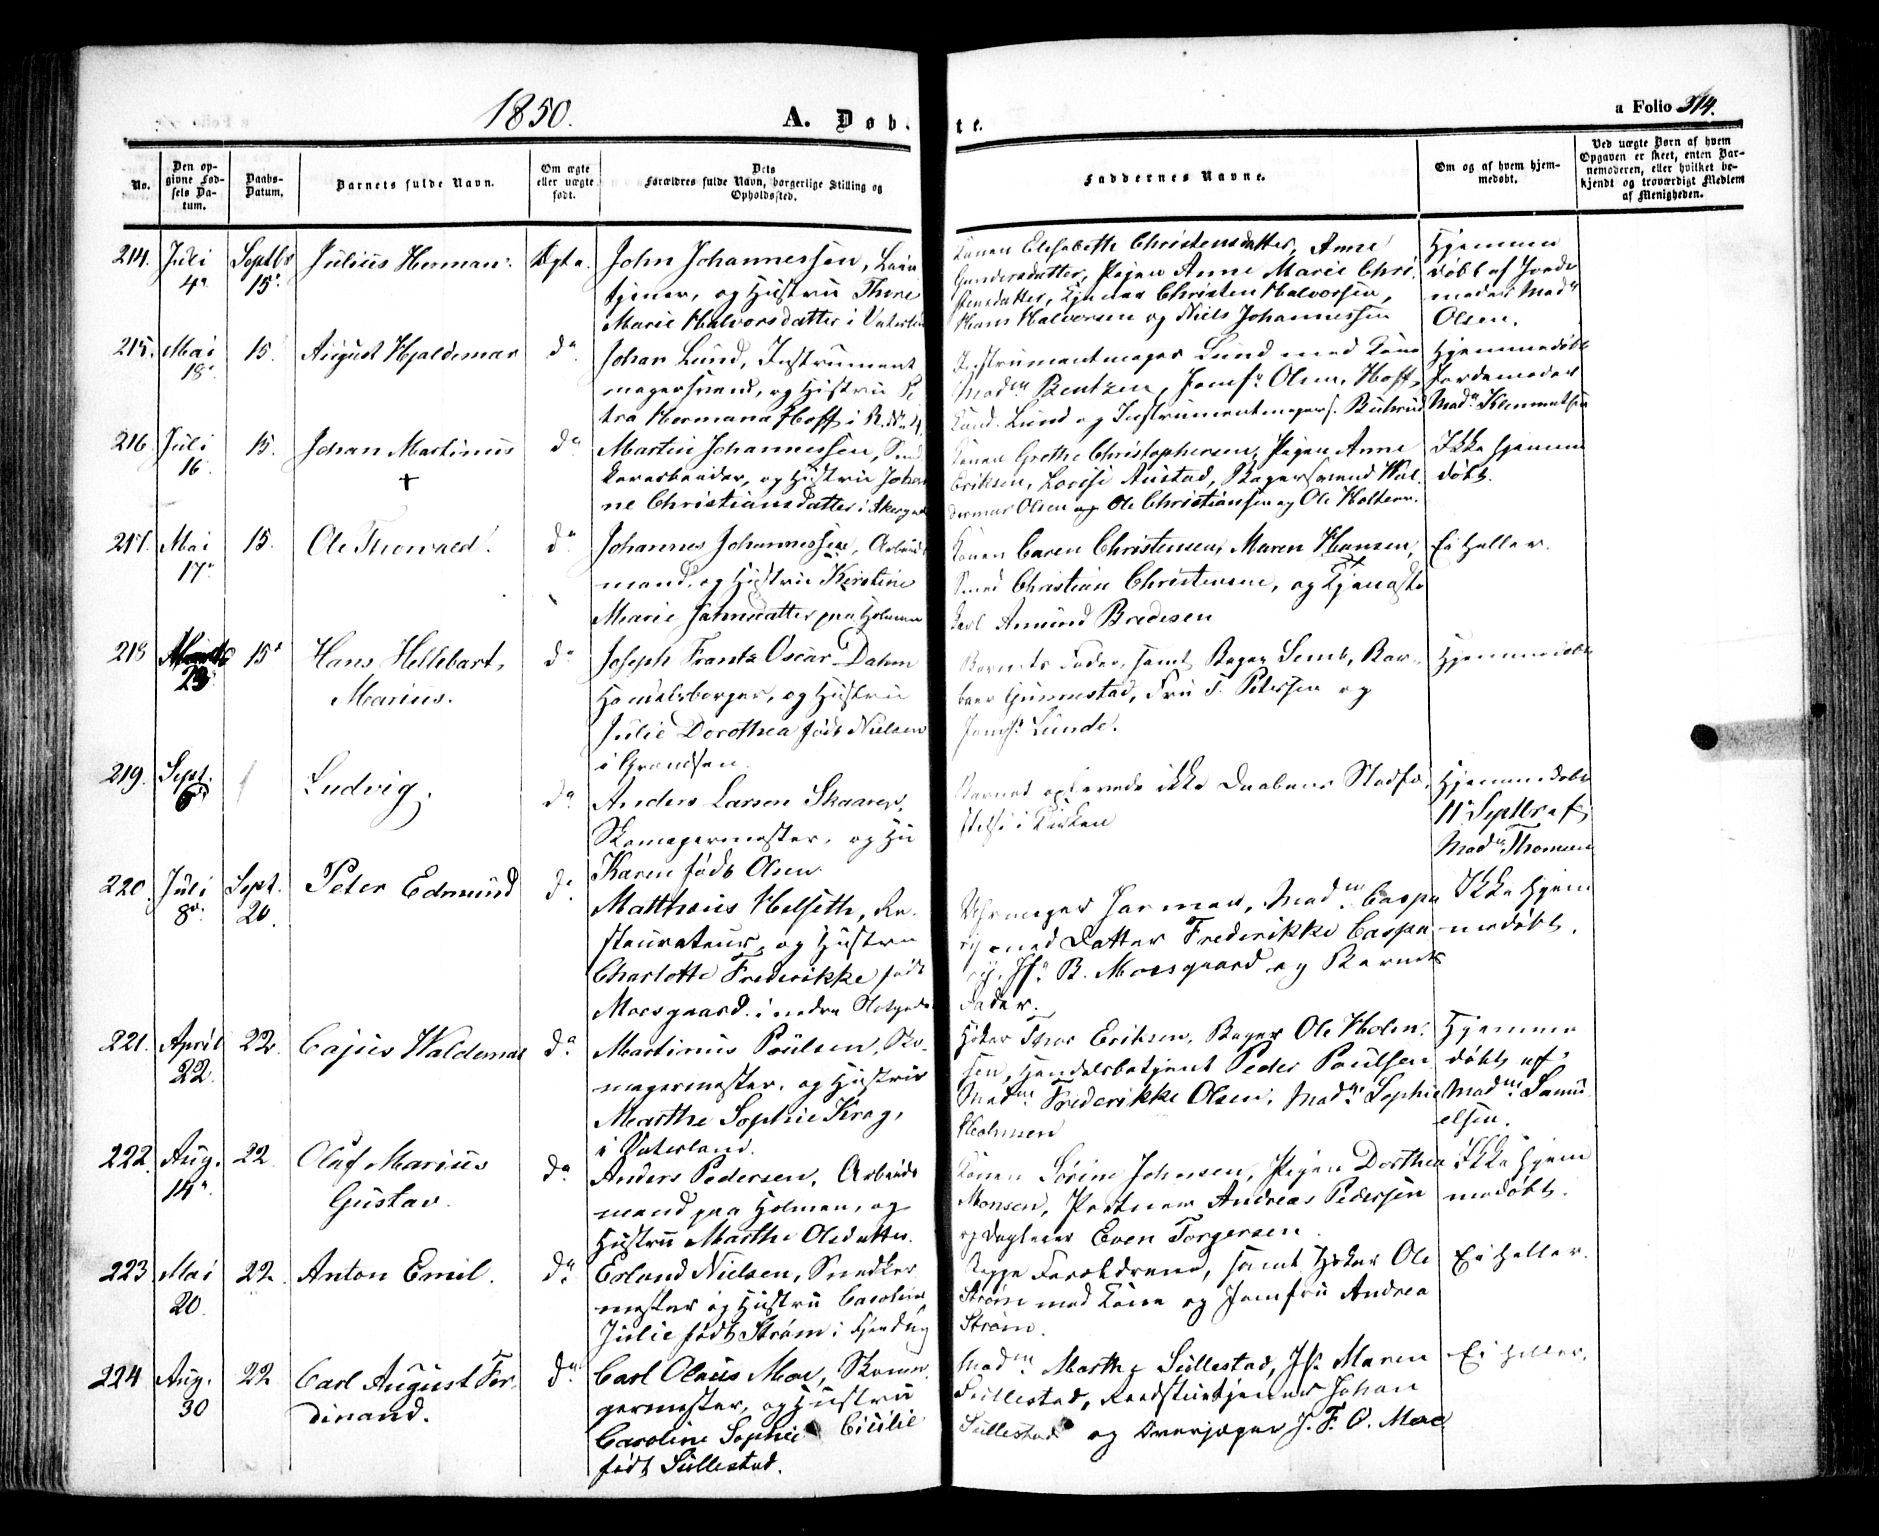 1850.
A. Døbte.
a Folio 314.
No.
Den op-
givne Fød-
sels Da-
tum.
Daabs-
Datum.
Barnets fulde Navn.
Om ægte
eller uægte
født.
Dets
Forældres fulde Navn, borgerlige Stilling og
Opholdssted.
Faddernes Navne.
Om og af hvem hjem-
medøbt.
Ved uægte Børn af hvem
Opgaven er skeet, enten Bar-
nemoderen, eller hvilket be-
kjendt og troværdigt Medlem
af Menigheden.
214. Juli 4de Septbr 15de Julius Herman. Ægte.
John Johannessen,
tjener, og Hustru Thrine
Marie Halvorsdatter i Vaterland
Konen Elisabeth Christensdatter, Anne
Gundersdatter, Pigen Anne Marie Chri-
stensdatter, Christen Halvorsen,
Hans Halvorsen og Niels Johannessen
Hjemme
døbt af Jorde
moder Mad.
Olsen.
215. Mai 18. 15. August Hjaldemar do
Johan Lund, Instrument
magersvend, og Hustru Pe
tra Hermana Hoff i
Instrumentmager Lund med Kone
Madm Bentzen, Jomf. Olsen, Hoff,
Lund og Instrumentmagers.
Hjemmedøbt
Jordemoder
Mad. Klementsen
216. Juli 16. 15. Johan Martinus do
+
Martin Johannessen,
og Hustru Johan
ne Christiansdatter i Akersgaden
Konen Grethe Christophersen, Pigen Anne
Eriksen, Lovise Austad, Bagersvend Wal
demar Olsen og Ole Christiansen og Ole Halvorsen.
Ikke hjemme
døbt.
217. Mai 17de 15. Ole Thorvald. do
Johannes Johannessen, Arbeids
mand og Hustru Kerstine
Marie paa Holmen
Konen Caren Christensen, Maren Hansen,
Smed Christian Christensen, og Tjeneste
karl Amund Bredesen
Ei heller.
218 Marts 23. 15de Hans Hellebart do
Marius.
Joseph Frantz Oscar Dahm
Handelsborger, og Hustru
Julie Dorothea født Nielsen
i Grændsen.
Barnets Fader, samt Bager Semb, Bar-
beer Gunnestad, Fru F. Petersen og
Jomf. Lunde.
Hjemmedøbt
219. Sept. 6. Ludvig. do
Anders Larsen Skaarer,
Skomagermester, og Hu
Karen født Olsen
Barnet oplevede ikke Daabens Stadfæ
stelse i Kirken
Hjemmedøbt
11 Septbr af
Mad. Thomsen
220. Juli 8de Sept. 20. Peter Edmund do
Matthæus Helseth, Re-
staurateur, og Hustru
Charlotte Frederikke født
Morsgaard i nedre Slotsgade
Uhrmager Jarman, Madm. Caspa
ry med Datter Frederikke Caspa
ry, Jfr. B. Morsgaard og Barnets
Fader.
Ikke hjem
medøbt.
221. April 22. 22. Cajus Waldemar do
Martinus Poulsen, Sko-
magermester, og Hustru
Marthe Sophie Krag,
i Vaterland.
Høker Thor Eriksen, Bager Ole Holm-
sen, Handelsbetjent Peder Poulsen
Madme Frederikke Olsen, Madm. Sophie
Holmsen
Hjemme
døbt af
Madm. Samu
elsen.
222. Aug. 14de 22. Oluf Marius do
Gustav.
Anders Pedersen, Arbeids
mand paa Holmen, og
Hustru Marthe Olsdatter.
Konen Sørine Johnsen, Pigen Dorthea
Monsen, Portner Andreas Pedersen
og Dagleier Even Torgersen.
Ikke hjem
medøbt.
223. Mai 20. 22. Anton Emil. do
Erland Nielsen, Snedker
mester og Hustru Caroline
Julie født Strøm i
Begge Forældrene, samt Høker Ole
Strøm med Kone og Jomfru Andrea
Strøm.
Ei heller.
224 Aug. 30 22 Carl August Fer- do
dinand.
Carl Olaus Moe, Skoma
germester, og Hustru
Caroline Sophie Cicilie
født Sullestad.
Madm Marthe Sullestad, Jfr. Maren
Sullestad, Raadstuetjener Johan
Sullestad og Overjæger J. F. O. Moe
Ei heller.